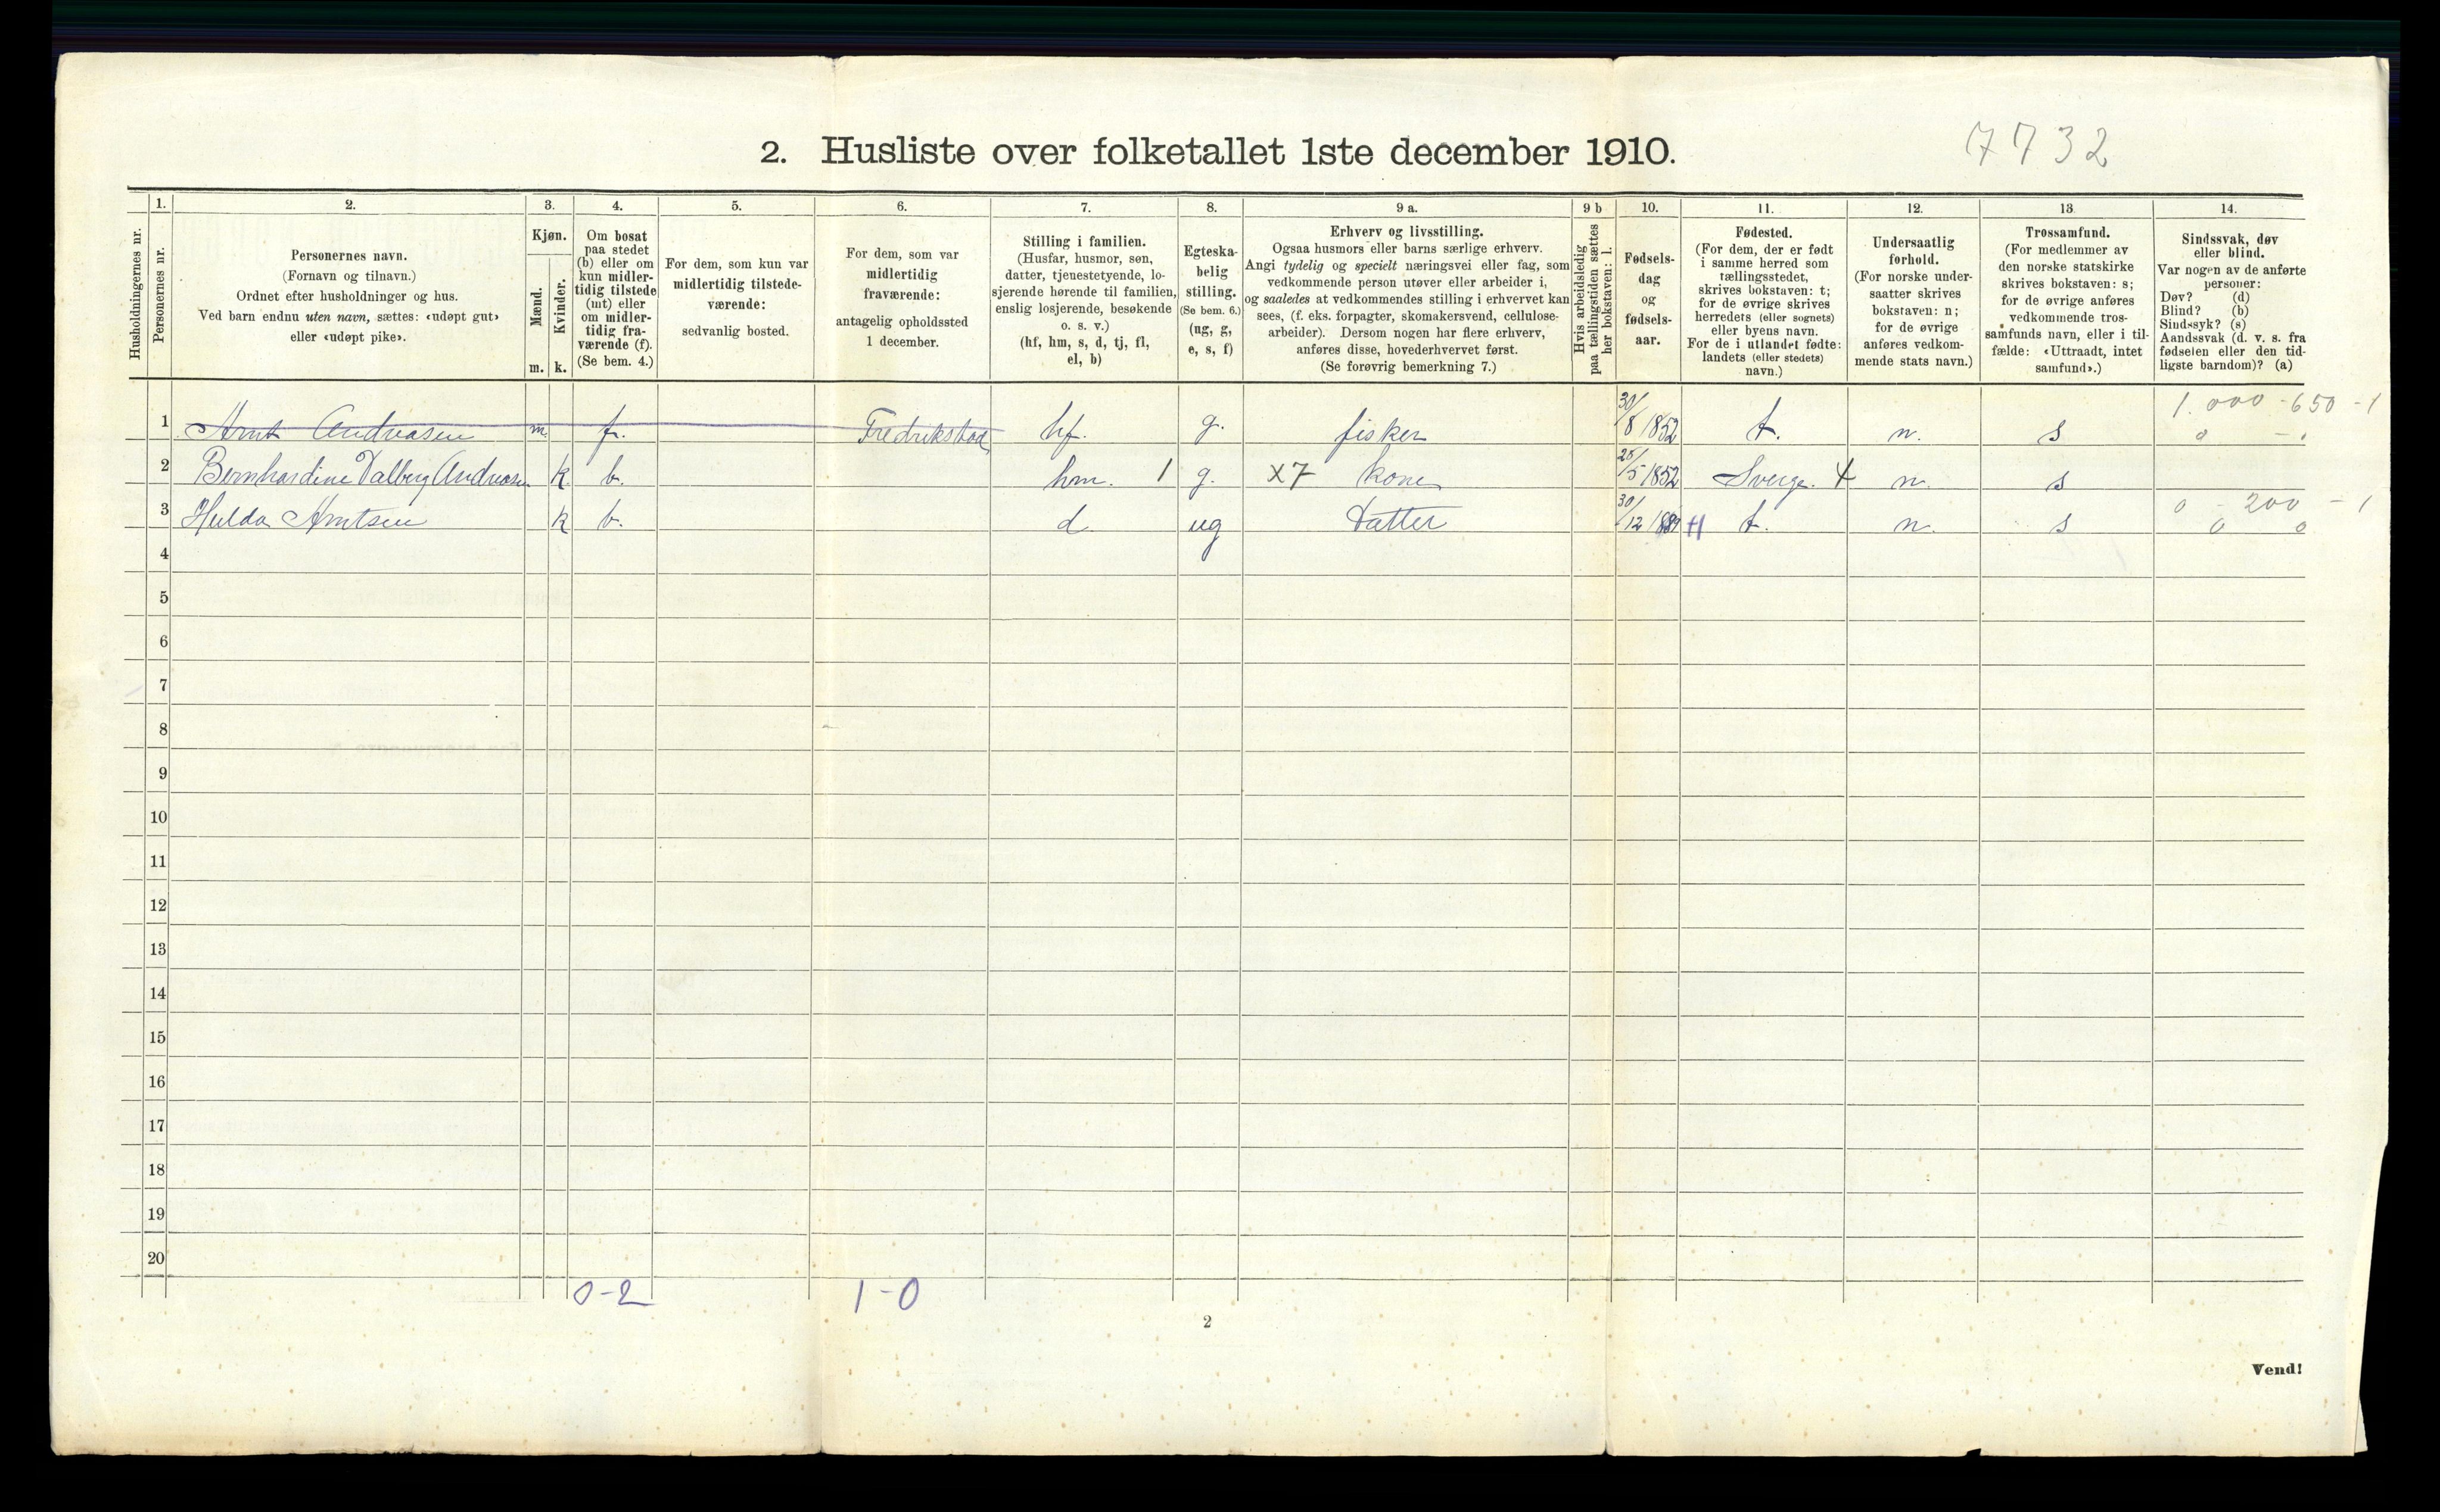 7732
2. Husliste over folketallet 1ste december 1910.
Husholdningernes nr.
1.
Personernes nr.
2.
Personernes navn.
(Fornavn og tilnavn.)
Ordnet efter husholdninger og hus.
Ved barn endnu uten navn, sættes: «udøpt gut»
eller «udøpt pike».
3.
Kjøn.
Mænd.
Kvinder.
m. k.
4.
Om bosat
paa stedet
(b) eller om
kun midler-
tidig tilstede
(mt) eller
om midler-
tidig fra-
værende (f).
(Se bem. 4.)
5.
For dem, som kun var
midlertidig tilstede-
værende:
sedvanlig bosted.
6.
For dem, som var
midlertidig
fraværende:
antagelig opholdssted
1 december.
7.
Stilling i familien.
(Husfar, husmor, søn,
datter, tjenestetyende, lo-
sjerende hørende til familien,
enslig losjerende, besøkende
o. s. v.)
(hf, hm, s, d, tj, fl,
el, b)
8.
Egteska-
belig
stilling.
(Se bem. 6.)
(ug, g,
e, s, f)
9 a.
Erhverv og livsstilling.
Ogsaa husmors eller barns særlige erhverv.
Angi tydelig og specielt næringsvei eller fag, som
vedkommende person utøver eller arbeider i,
og saaledes at vedkommendes stilling i erhvervet kan
sees, (f. eks. forpagter, skomakersvend, cellulose-
arbeider). Dersom nogen har flere erhverv,
anføres disse, hovederhvervet først.
(Se forøvrig bemerkning 7.)
9 b
Hvis arbeidsledig
paa tællingstiden sættes
her bokstaven: l.
10.
Fødsels-
dag
og
fødsels-
aar.
11.
Fødested.
(For dem, der er født
i samme herred som
tællingsstedet,
skrives bokstaven: t;
for de øvrige skrives
herredets (eller sognets)
eller byens navn.
For de i utlandet fødte:
landets (eller stedets)
navn.)
12.
Undersaatlig
forhold.
(For norske under-
saatter skrives
bokstaven: n;
for de øvrige
anføres vedkom-
mende stats navn.)
13
Trossamfund.
(For medlemmer av
den norske statskirke
skrives bokstaven: s;
for de øvrige anføres
vedkommende tros-
samfunds navn, eller i til-
fælde: «Uttraadt, intet
samfund».)
14.
Sindssvak, døv
eller blind.
Var nogen av de anførte
personer:
Døv? (d)
Blind? (b)
Sindssyk? (s)
Aandssvak (d. v. s. fra
fødselen eller den tid-
ligste barndom)? (a)
1.000 - 650 - 1
1 Arnt Andreasen m fr. Fredrikstad hf. g. fisker 30/8 1852 t. n. s
2 Bernhardine Dalberg Andreasen k b. hm. 1 g. X7 kone 25/5 1852 Sverge. 4 n. s
0 200 - 1
3 Hulda Arntsen k b. d. ug Datter 30/12 1889 t. n. s 0 0
4
5
6
7
8
9
10
11
12
13
14
15
16
17
18
19
20
0-2 1-0
2
Vend!